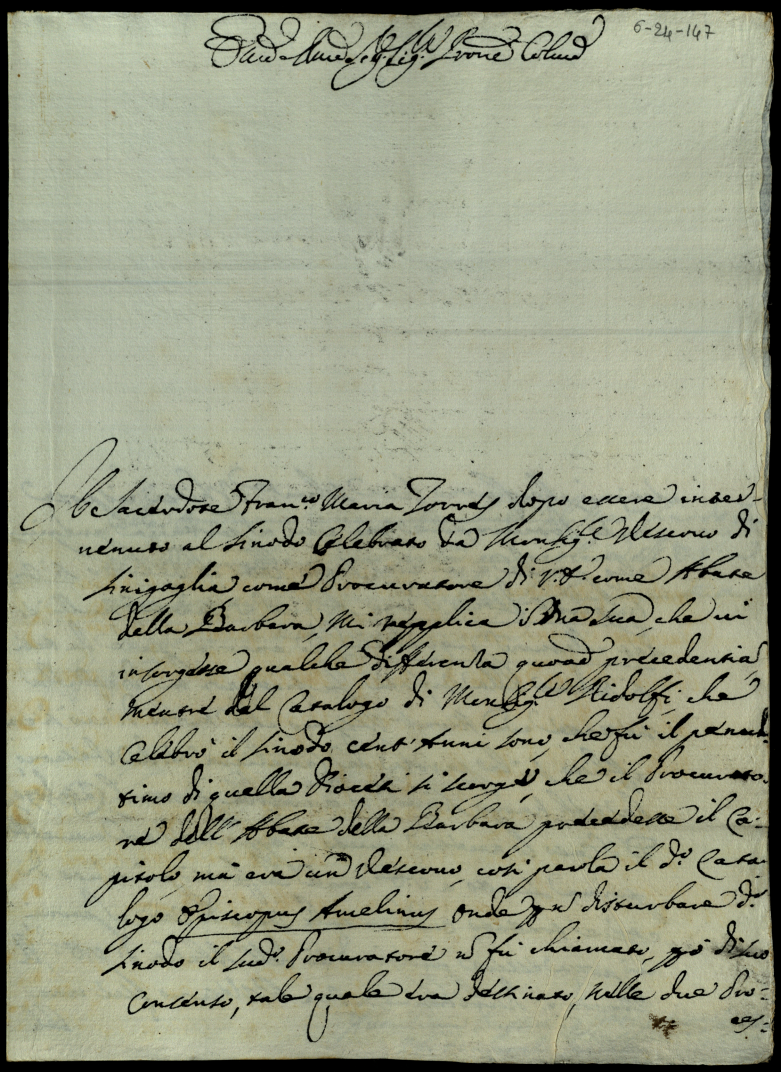 6-24-147
Sig.r Prone Colmo
Il Sacerdote Fran.co Maria Torres dopo essere inter-
venuto al Sinodo Celebrato da Monsig.re Vescovo di
Sinigaglia come Procuratore di V.S. come Abate
della Barbara, mi replica che vi
insorgesse qualche differenza quoad precedentia
mentre dal Catalogo di Monsig.re Ridolfi, che
Celebrò il Sinodo cent'Anni sono, che fù il penul-
timo di quella Diocesi si scorge, che il Procurato-
re dell'Abate della Barbara precedesse il Ca-
pitolo, mà era un Vescovo, così parla il d.o Cata-
logo Episcopus Amelinus onde p n disturbare d.o
Sinodo il sud.o Procuratore n fù chiamato, di suo
Consenso, tale quale era destinato, nelle due Pro-
ces-